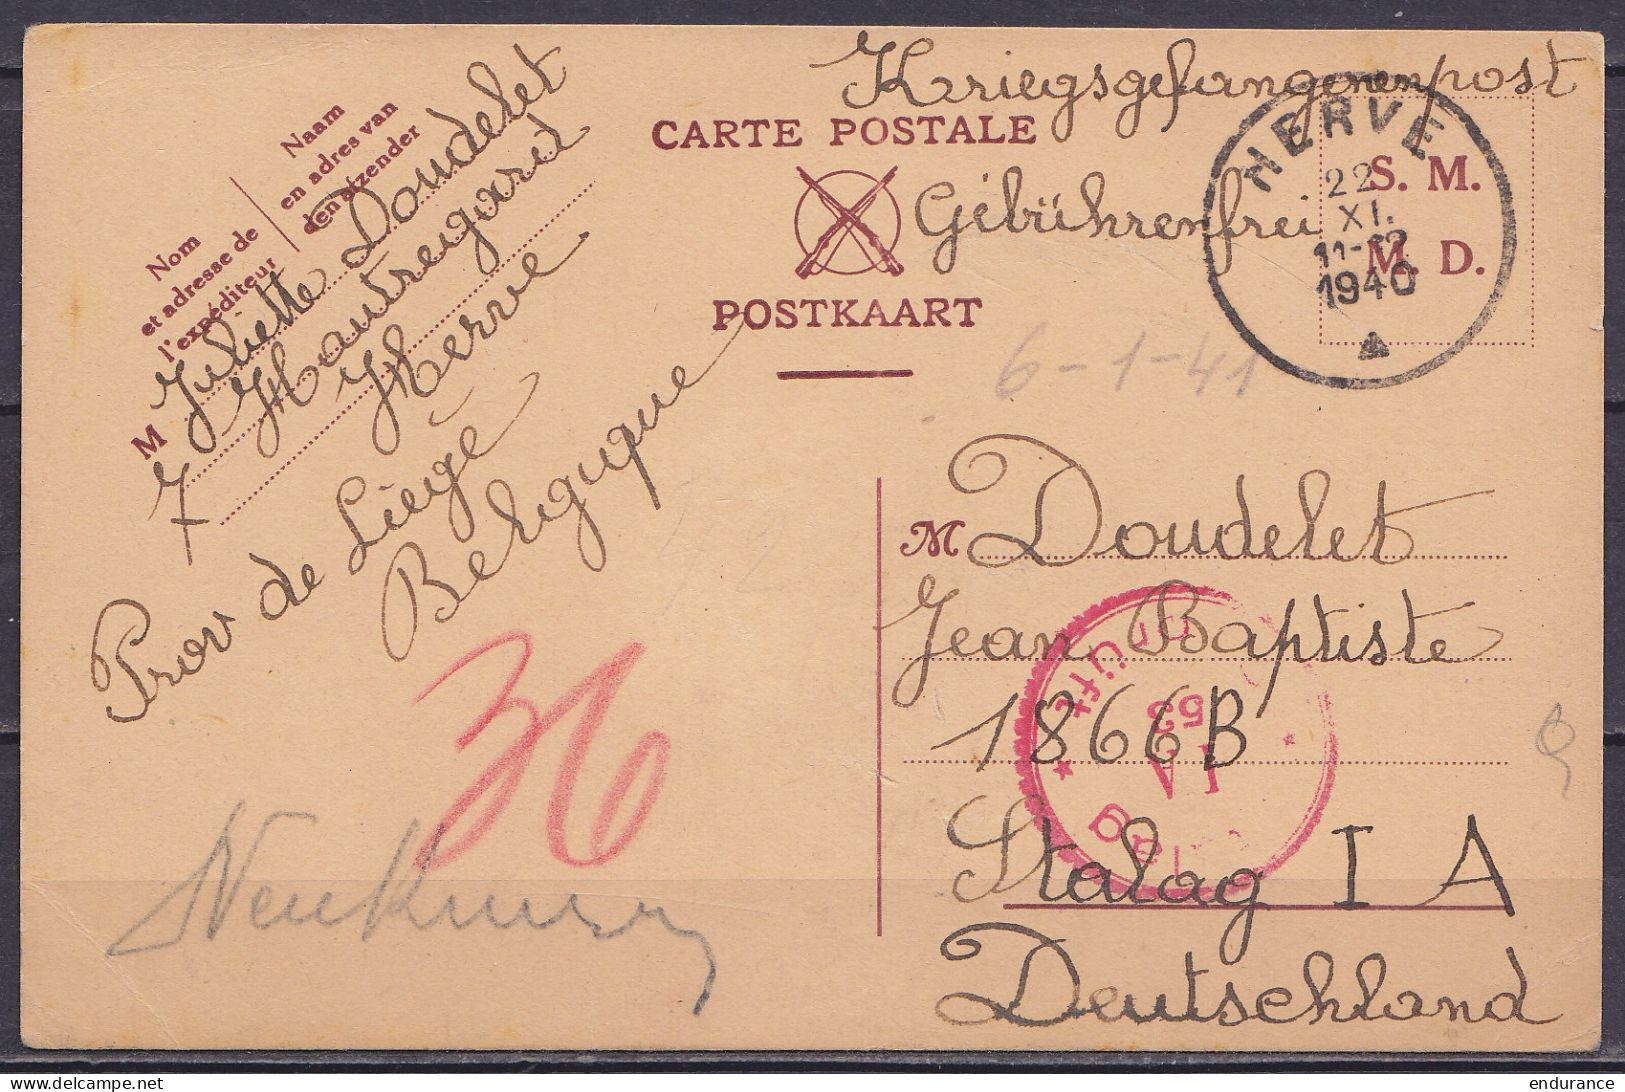 Kriegsgefangenenpost
CARTE POSTALE
Gebührenfrei
POSTKAART
S. M.
M. D.
HERVE
22
XI.
11-12
1940
6-1-41
Naam
en adres van
den afzender
Nom
et adresse de
l'expéditeur
M Juliette Doudelet
7 Hautregard
Herve
Prov de Liége
Belgique
M Doudelet
Jean Baptiste
1866B
Stalag I A
Deutschland
53
I A
36
delcampe.net
endurance